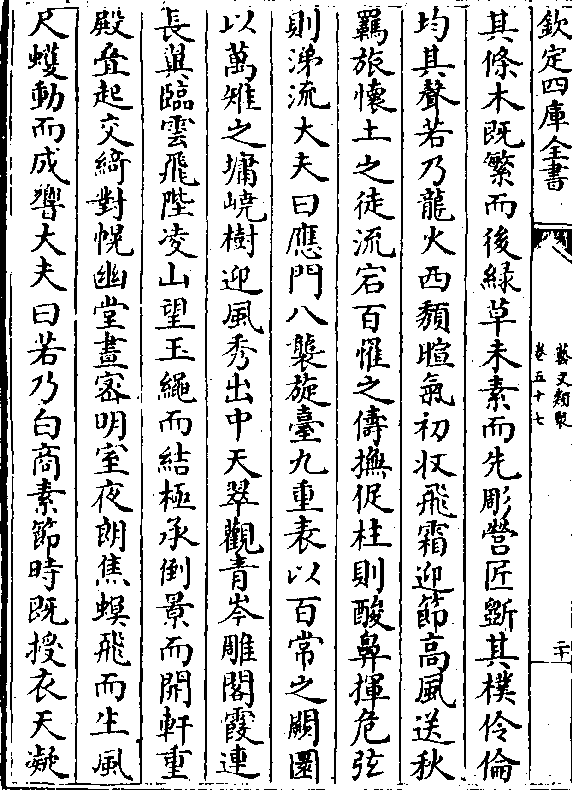 欽定四庫全書
藝文類聚
卷五十七
二十
其條木既繁而後緑草未素而先彫營匠斲其樸伶倫
均其聲若乃龍火西頽暄氣初收飛霜迎節高風送秋
羈旅懷土之徒流宕百罹之儔撫促柱則酸鼻揮危弦
則涕流大夫曰應門八襲旋臺九重表以百常之闕圜
以萬雉之墉嶢樹迎風秀出中天翠觀青岑雕閣霞連
長與臨雲飛陛凌山望玉繩而結極承倒景而開軒重
殿疊起交綺對幌幽堂晝宻明室夜朗焦螟飛而生風
尺蠖動而成響大夫曰若乃白商素節時既授衣天凝